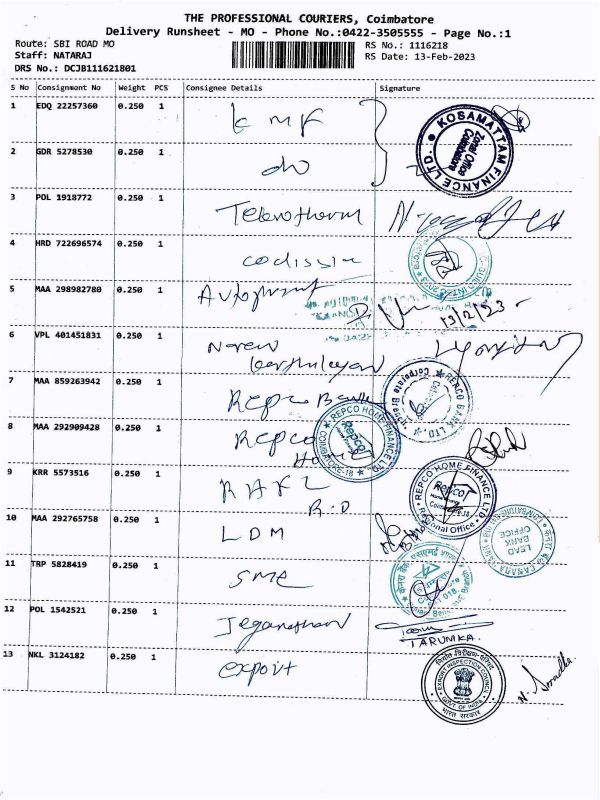 THE PROFESSIONAL COURIERS, Coimbatore
Delivery Runsheet - MO - Phone No.:0422-3505555 - Page No.:1
Route: SBI ROAD MO
RS No.: 1116218
Staff: NATARAJ
RS Date: 13-Feb-2023
DRS No.: DCJB111621801
S No Consignment No Weight PCS Consignee Details Signature
1 EDQ 22257360 0.250 1 KMF
KOSAMATTAM FINANCE LTD. Zonal Office Coimbatore
2 GDR 5278530 0.250 1 do
3 POL 1918772 0.250 1
4 HRD 722696574 0.250 1 codissia
5 MAA 298982780 0.250 1
13/2/23
6 VPL 401451831 0.250 1 Naren
Karthikeyan
7 MAA 859263942 0.250 1 Repco Bank
REPCO BANK LTD.
8 MAA 292909428 0.250 1 Repco
Home
REPCO HOME FINANCE LTD. Repco COIMBATORE-18
9 KRR 5573516 0.250 1 RHFL
R.O
REPCO HOME FINANCE LTD. Repco Regional Office
10 MAA 292765758 0.250 1 LDM
LEAD BANK OFFICE
11 TRP 5828419 0.250 1 SME
12 POL 1542521 0.250 1 Jeganathan
TARUNIKA.
13 NKL 3124182 0.250 1 export
EXPORT INSPECTION COUNCIL GOVT. OF INDIA भारत सरकार